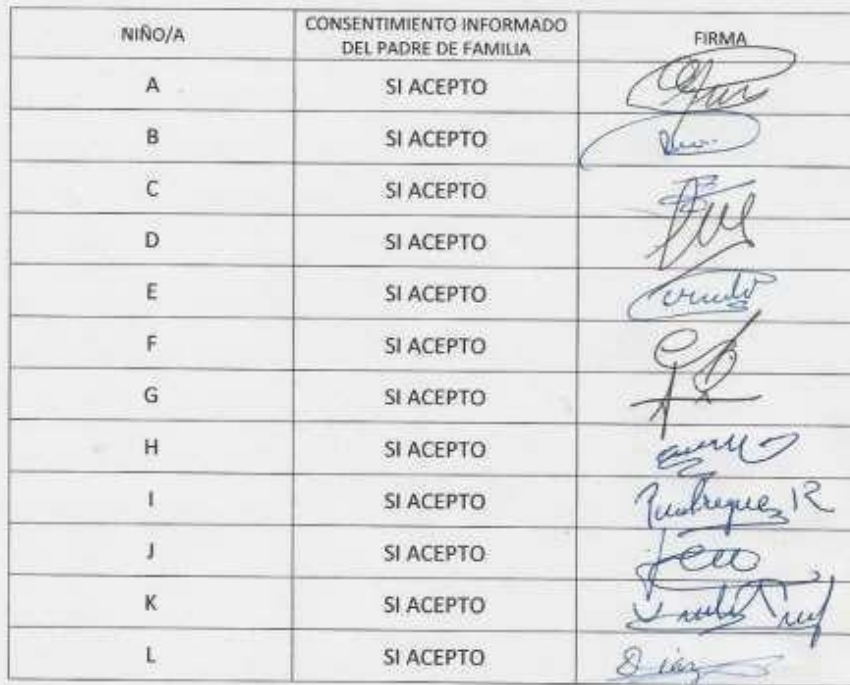 NIÑO/A
CONSENTIMIENTO INFORMADO
DEL PADRE DE FAMILIA
FIRMA
A SI ACEPTO
B SI ACEPTO
C SI ACEPTO
D SI ACEPTO
E SI ACEPTO
F SI ACEPTO
G SI ACEPTO
H SI ACEPTO
I SI ACEPTO
J SI ACEPTO
K SI ACEPTO
L SI ACEPTO